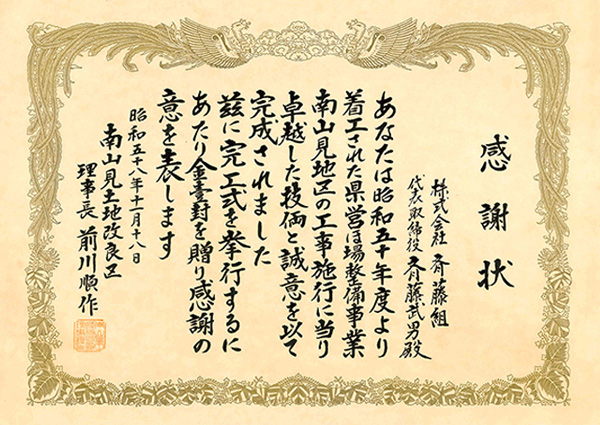 感謝状
株式会社 斉藤組
代表取締役 斉藤武男殿
あなたは昭和五十年度より
着工された県営ほ場整備事業
南山見地区の工事施行に当り
卓越した技術と誠意を以て
完成されました
茲に完工式を挙行するに
あたり金壹封を贈り感謝の
意を表します
昭和五十八年十一月十八日
南山見土地改良区
理事長 前川順作